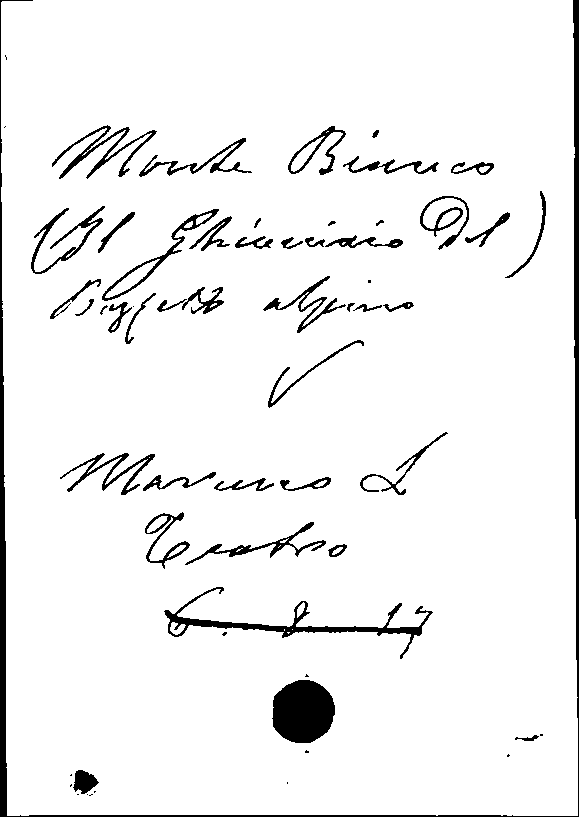 Monte Bianco
(Il Ghiacciaio Del)
Bozzetto alpino
Marenco L
Teatro
6. 8. 17